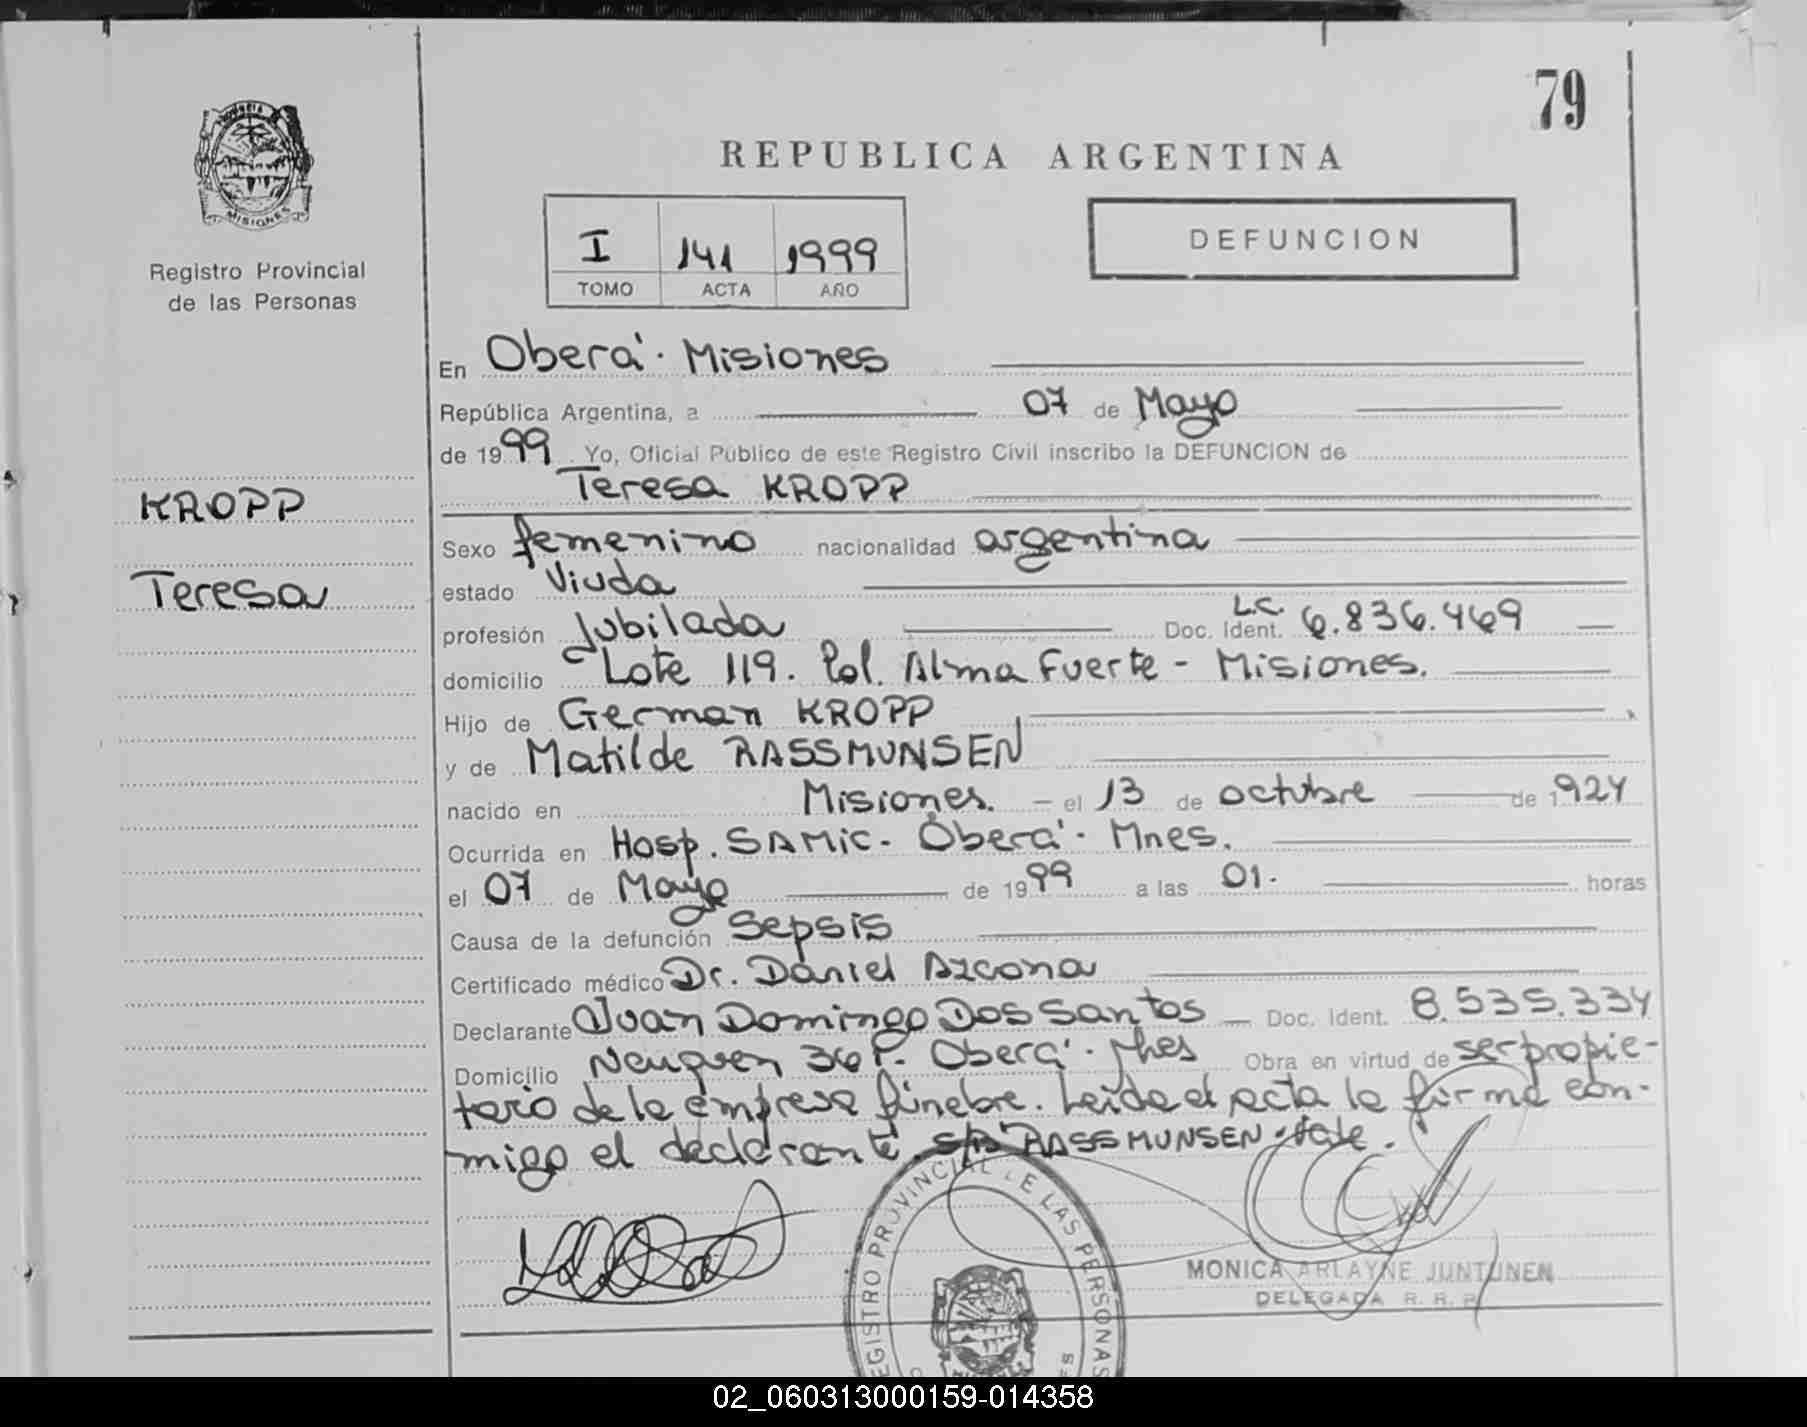 79
REPUBLICA ARGENTINA
MISIONES
Registro Provincial
de las Personas
I 141 1999
TOMO ACTA AÑO
DEFUNCION
En Oberá. Misiones
República Argentina, a 07 de Mayo
de 1999 Yo, Oficial Público de este Registro Civil inscribo la DEFUNCION de
Teresa KROPP
KROPP
Teresa
Sexo femenino nacionalidad argentina
estado Viuda
profesión Jubilada Doc. Ident. L.C. 6.836.469
domicilio Lote 119. Col. Alma Fuerte - Misiones.
Hijo de German KROPP
y de Matilde RASSMUNSEN
nacido en Misiones. - el 13 de octubre de 1924
Ocurrida en Hosp. SAMIC. Oberá. Mnes.
el 07 de Mayo de 1999 a las 01. horas
Causa de la defunción Sepsis
Certificado médico Dr. Daniel Azcona
Declarante Juan Domingo Dos Santos Doc. Ident. 8.535.334
Domicilio Neuquen Oberá. Mnes Obra en virtud de ser propie-
tario de la empresa fúnebre. Leída el acta la firma con-
migo el declarante. S/R RASSMUNSEN. Vale.
REGISTRO PROVINCIAL DE LAS PERSONAS
MONICA ARLAYNE JUNTUNEN
DELEGADA R. R. P.
02_060313000159-014358